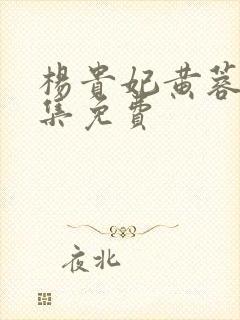 楊貴妃黄蓉
集免費
夜北